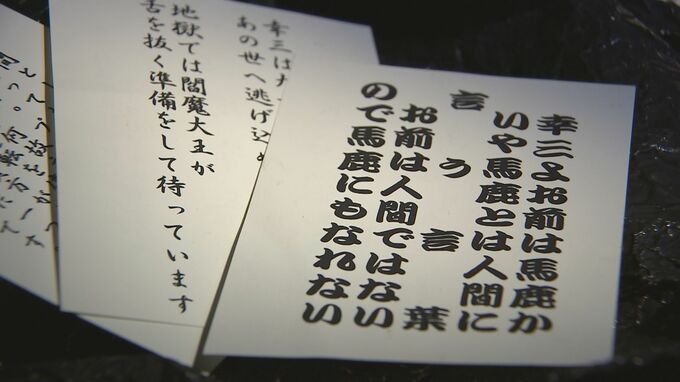 幸三よお前は馬鹿か
いや馬鹿とは人間に
言う言葉
お前は人間ではない
ので馬鹿にもなれない
幸三は
あの世へ逃げ込
地獄では閻魔大王が
舌を抜く準備をして待っています